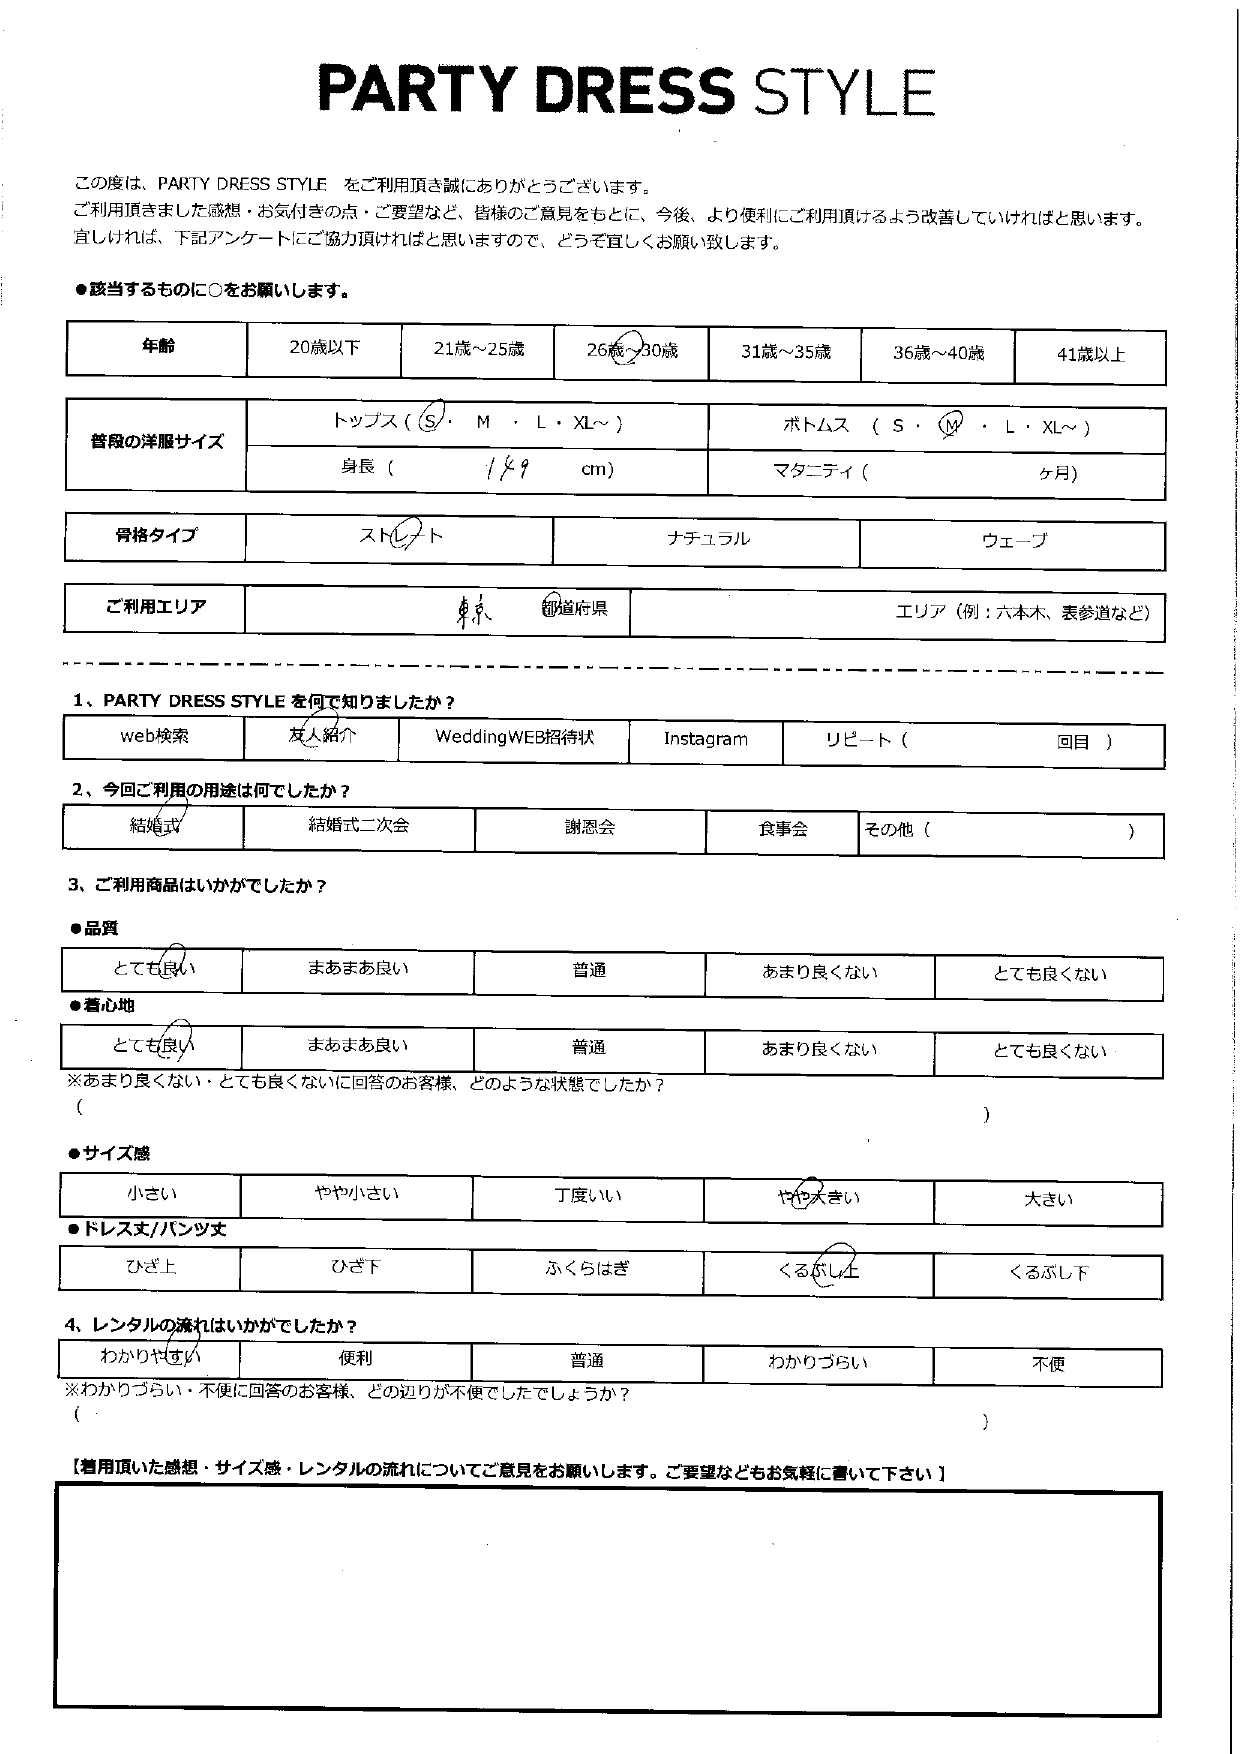 PARTY DRESS STYLE
この度は、PARTY DRESS STYLE をご利用頂き誠にありがとうございます。
ご利用頂きました感想・お気付きの点・ご要望など、皆様のご意見をもとに、今後、より便利にご利用頂けるよう改善していければと思います。
宜しければ、下記アンケートにご協力頂ければと思いますので、どうぞ宜しくお願い致します。
●該当するものに○をお願いします。
年齢 20歳以下 21歳～25歳 26歳～30歳 31歳～35歳 36歳～40歳 41歳以上
普段の洋服サイズ
トップス ( S ・ M ・ L ・ XL～ ) ボトムス ( S ・ M ・ L ・ XL～ )
身長 ( 149 cm) マタニティ ( ヶ月)
骨格タイプ ストレート ナチュラル ウェーブ
ご利用エリア 東京 都道府県 エリア（例：六本木、表参道など）
1、PARTY DRESS STYLE を何で知りましたか？
web検索 友人紹介 WeddingWEB招待状 Instagram リピート ( 回目 )
2、今回ご利用の用途は何でしたか？
結婚式 結婚式二次会 謝恩会 食事会 その他 ( )
3、ご利用商品はいかがでしたか？
●品質
とても良い まあまあ良い 普通 あまり良くない とても良くない
●着心地
とても良い まあまあ良い 普通 あまり良くない とても良くない
※あまり良くない・とても良くないに回答のお客様、どのような状態でしたか？
( )
●サイズ感
小さい やや小さい 丁度いい やや大きい 大きい
●ドレス丈/パンツ丈
ひざ上 ひざ下 ふくらはぎ くるぶし上 くるぶし下
4、レンタルの流れはいかがでしたか？
わかりやすい 便利 普通 わかりづらい 不便
※わかりづらい・不便に回答のお客様、どの辺りが不便でしたでしょうか？
( )
【着用頂いた感想・サイズ感・レンタルの流れについてご意見をお願いします。ご要望などもお気軽に書いて下さい 】